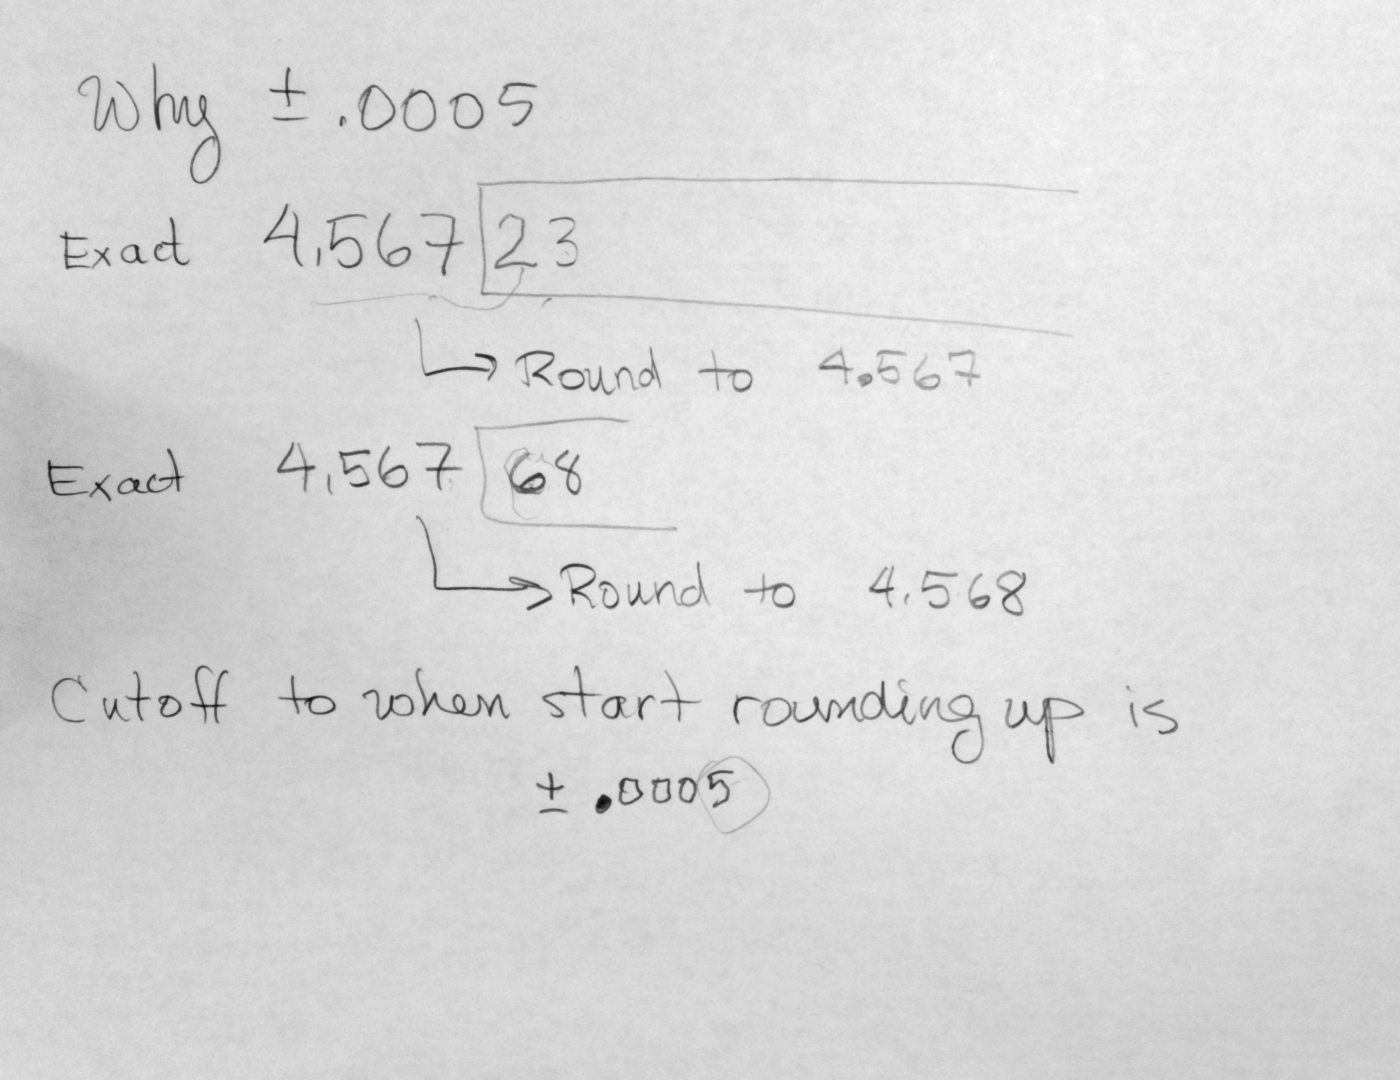 Why ± .0005
Exact 4.56723
Round to 4.567
Exact 4.56768
Round to 4.568
Cutoff to when start rounding up is
± .0005